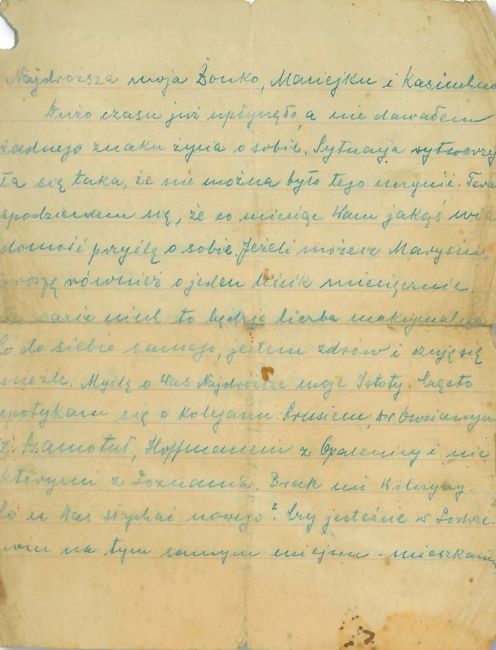 Najdroższa moja Żonko, Maciejku i Kasieńko
Dużo czasu już upłynęło, a nie dawałem
żadnego znaku życia o sobie. Sytuacja wytworzy
ła się taka, że nie można było tego uczynić. Teraz
spodziewam się, że co miesiąc Wam jakąś wia
domość prześlę o sobie. Jeżeli możesz Marysiu,
proszę również o jeden liścik miesięcznie
razie niech to będzie liczba maksymalna
Co do siebie samego, jestem zdrów i czuję się
nieźle. Myślę o Was Najdroższe moje Istoty. Często
spotykam się z Kolegami
z Szamotuł, Hoffmanem z Opalenicy i nie
którymi z Poznania. Brak mi
Co u Was słychać nowego? Czy jesteście w
na tym samym miejscu - mieszkaniu